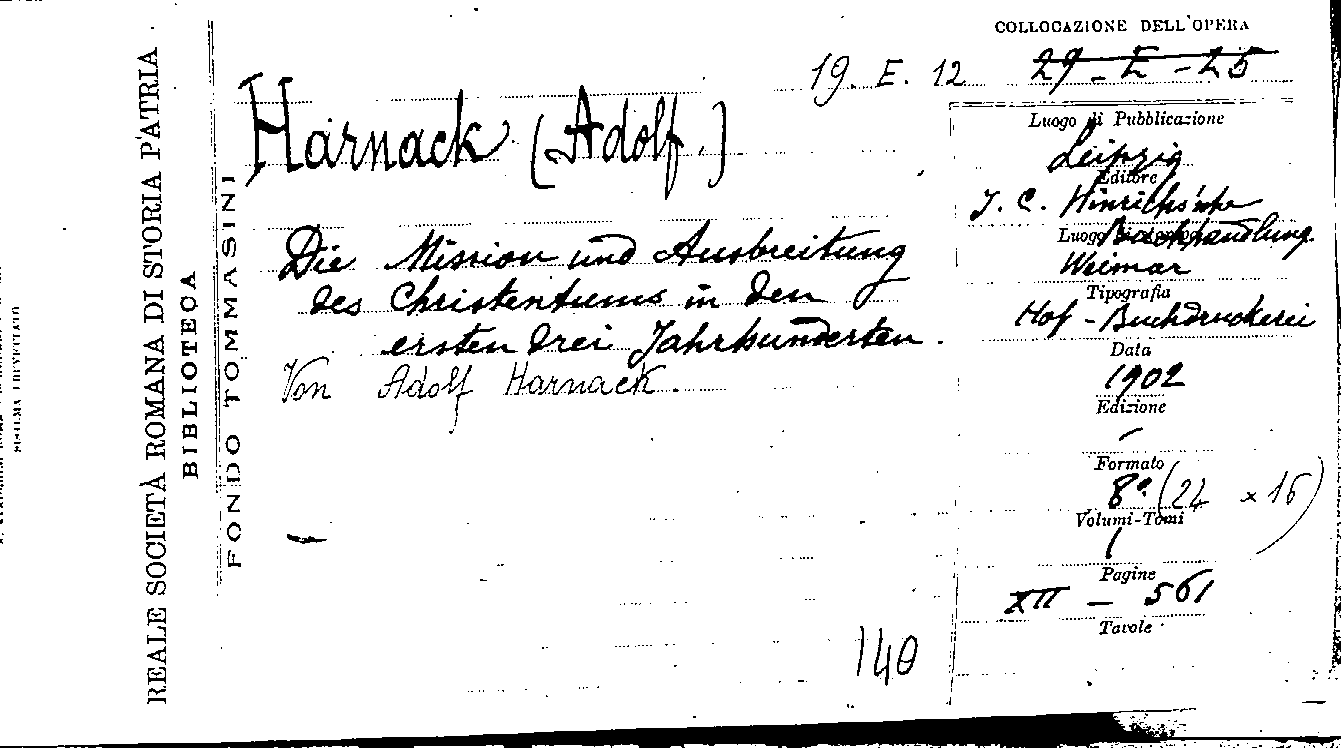 REALE SOCIETÀ ROMANA DI STORIA PATRIA
BIBLIOTECA
FONDO TOMMASINI
COLLOCAZIONE DELL'OPERA
19. E. 12
29 - E - 25
Harnack (Adolf.)
Die Mission und Ausbreitung
des Christentums in den
ersten drei Jahrhunderten.
Von Adolf Harnack.
140
Luogo di Pubblicazione
Leipzig
Editore
J. C. Hinrichs'sche
Buchhandlung
Luogo
Weimar
Tipografia
Hof - Buchdruckerei
Data
1902
Edizione
Formato
8° (24 x 16)
Volumi-Tomi
1
Pagine
XII - 561
Tavole